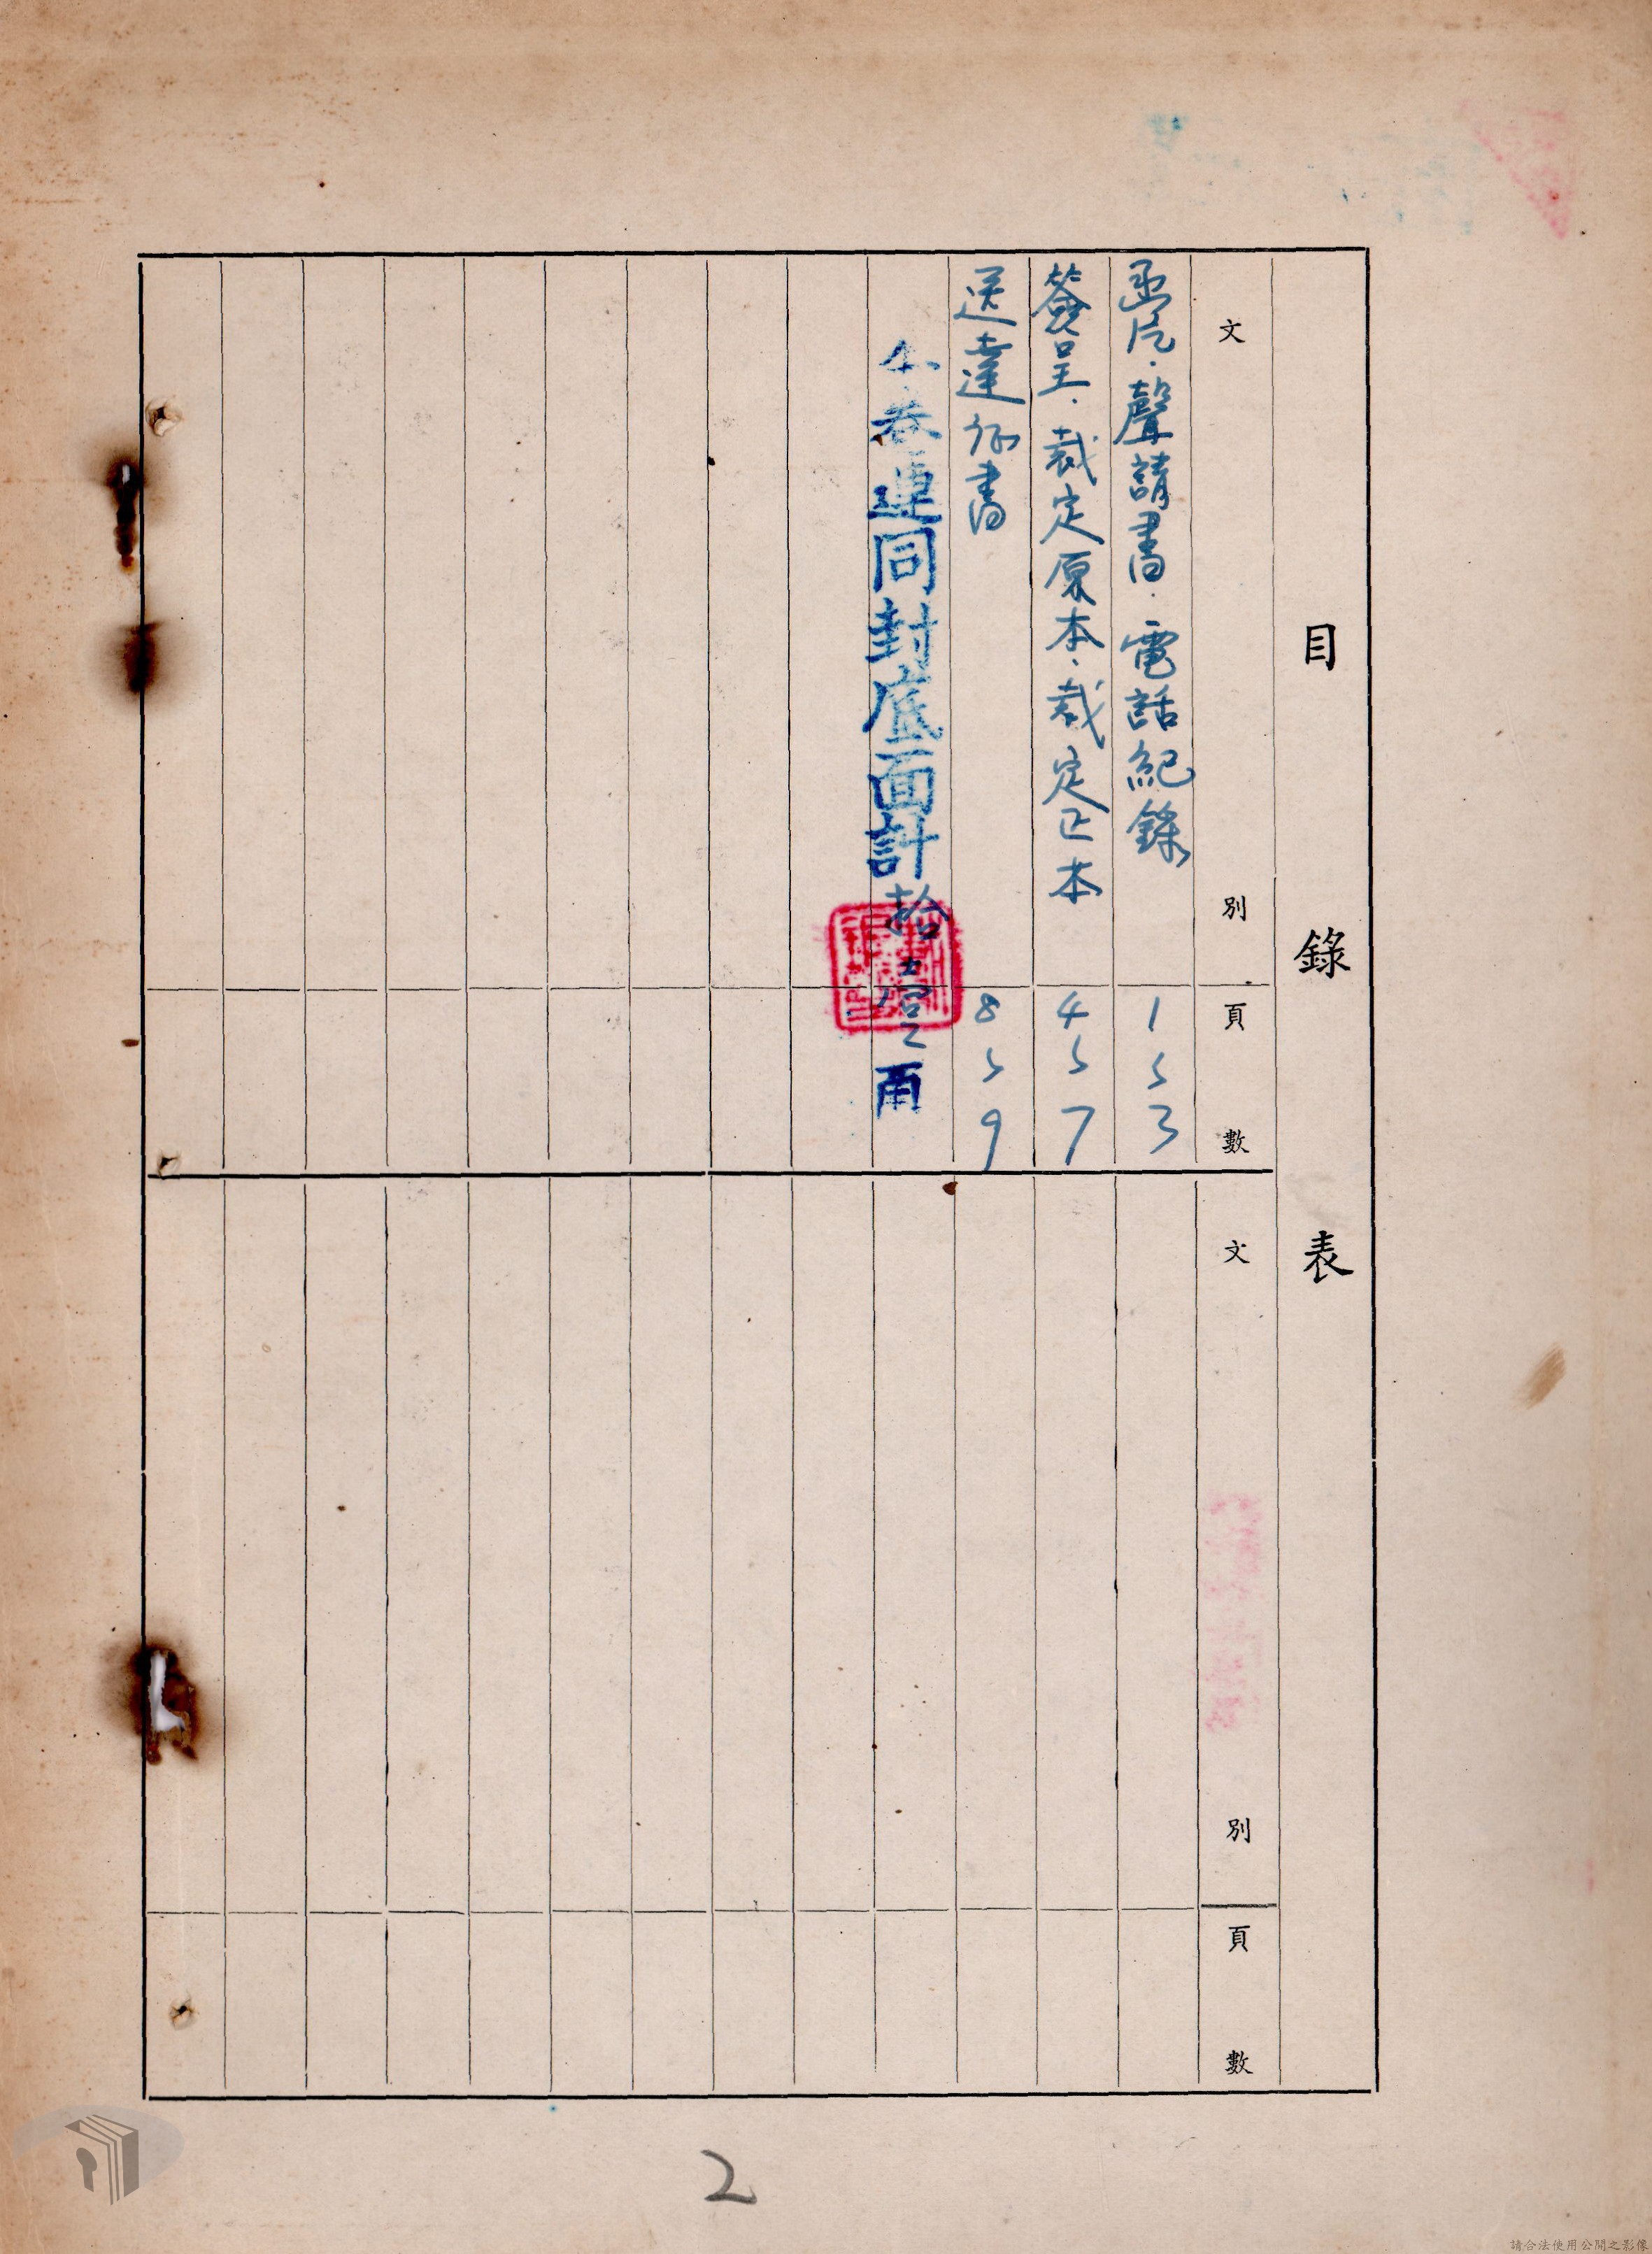 目錄表
文別
頁數
函片．聲請書．電話紀錄
1〜3
簽呈．裁定原本．裁定正本
4〜7
送達証書
8〜9
本卷連同封底面計拾壹頁
文別
頁數
2
請合法使用公開之影像